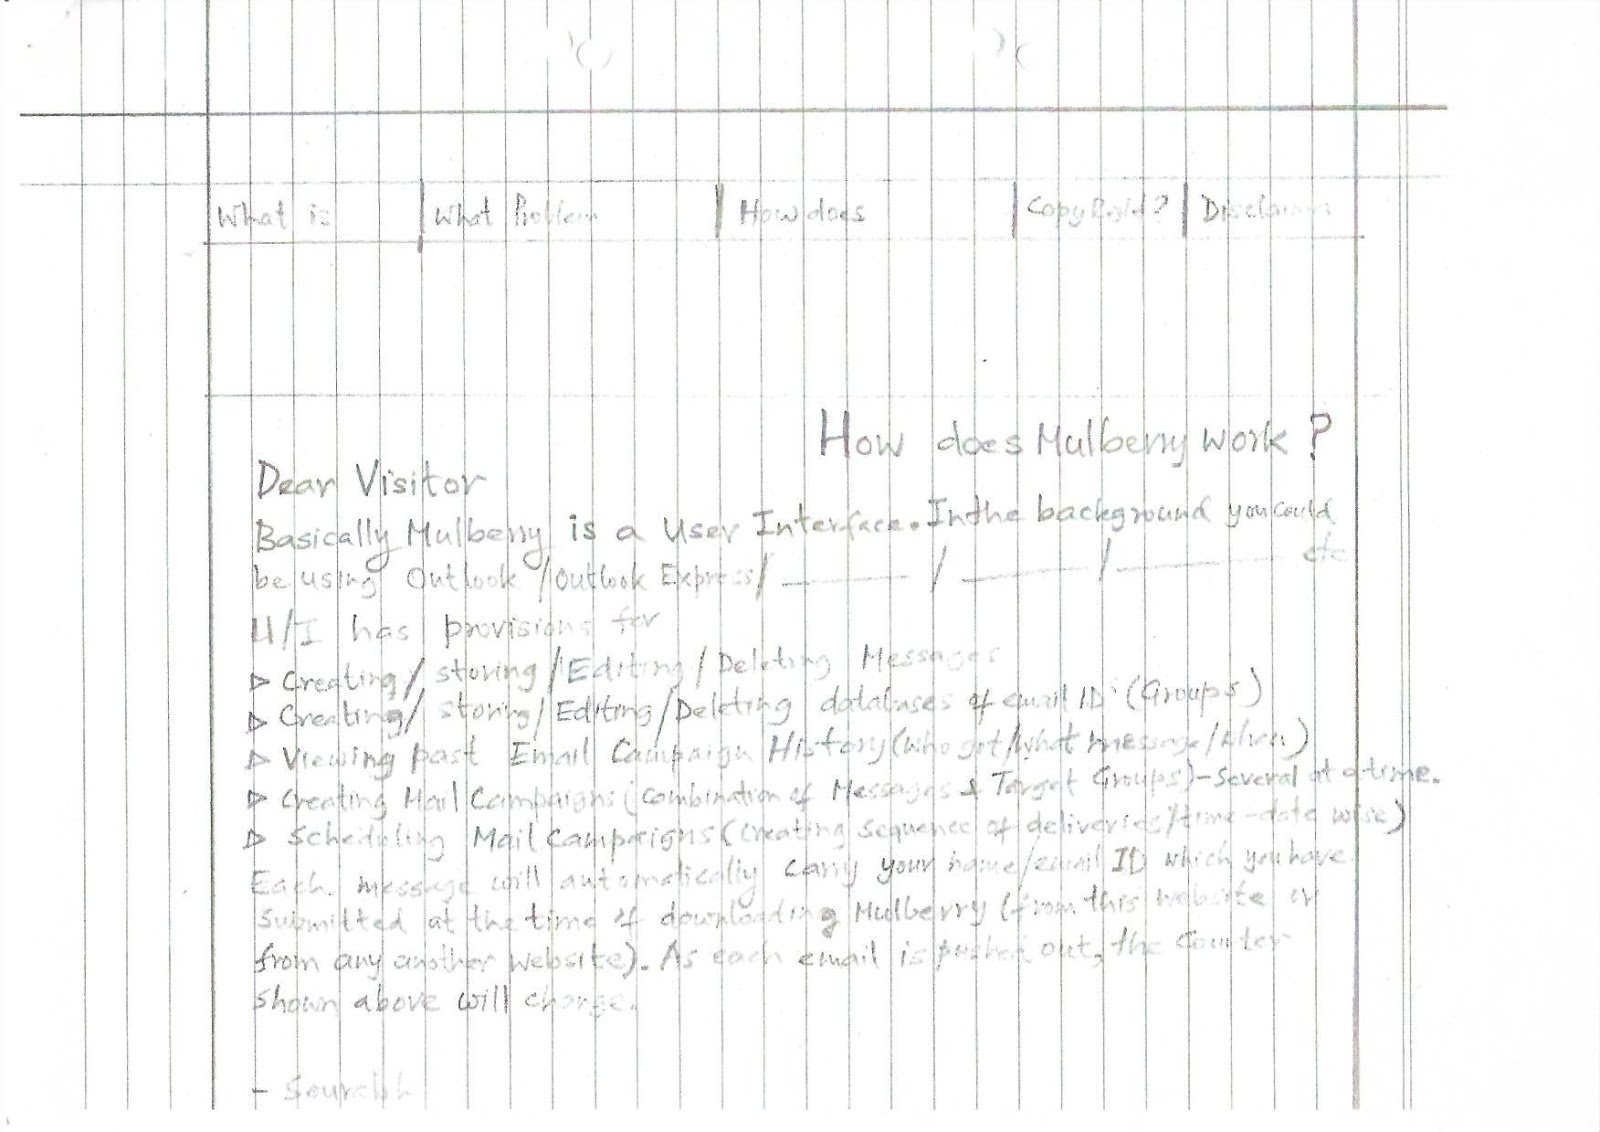 What is | What Problem | How does | CopyRight? | Disclaimers
How does Mulberry work ?
Dear Visitor
Basically Mulberry is a User Interface. In the background you could
be using Outlook / Outlook Express / ______ / ______ / ______ etc
U/I has provisions for
▷ Creating / storing / Editing / Deleting Messages
▷ Creating / storing / Editing / Deleting databases of email ID (Groups)
▷ Viewing past Email Campaign History (who got/what message/when)
▷ Creating Mail Campaigns (combination of Messages & Target Groups) - several at a time.
▷ Scheduling Mail Campaigns (creating sequence of deliveries/time-date wise)
Each message will automatically carry your name/email ID which you have
submitted at the time of downloading Mulberry (from this website or
from any another website). As each email is pushed out, the Counter
shown above will change.
- Sourabh